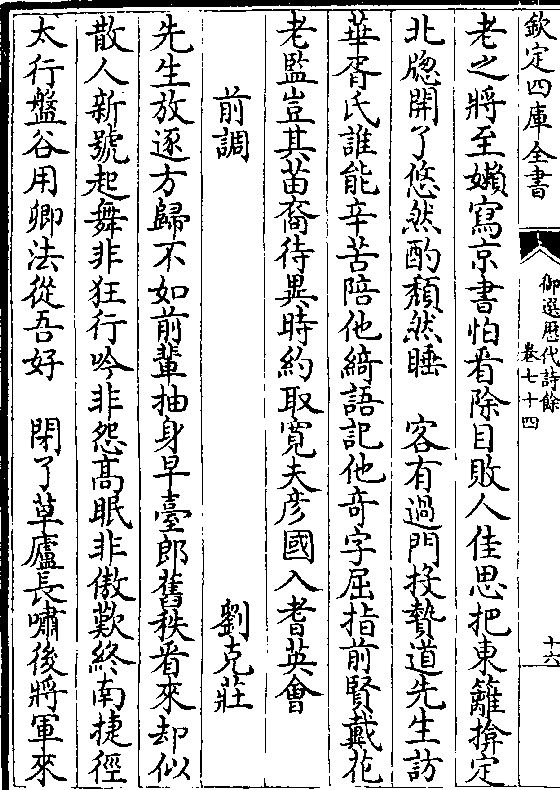 欽定四庫全書
御選歷代詩餘
卷七十四
十六
老之將至嬾寫京書怕看除目敗人佳思把東籬揜定
北牎開了悠然酌頹然睡　客有過門投贄道先生訪
華胥氏誰能辛苦陪他綺語記他奇字屈指前賢戴花
老監豈其苗裔待異時約取寛夫彦國入耆英會
前調　劉克莊
先生放逐方歸不如前輩抽身早臺郎舊秩看來却似
散人新號起舞非狂行吟非怨髙眠非傲歎終南捷徑
太行盤谷用卿法從吾好　閉了草廬長嘯後將軍來